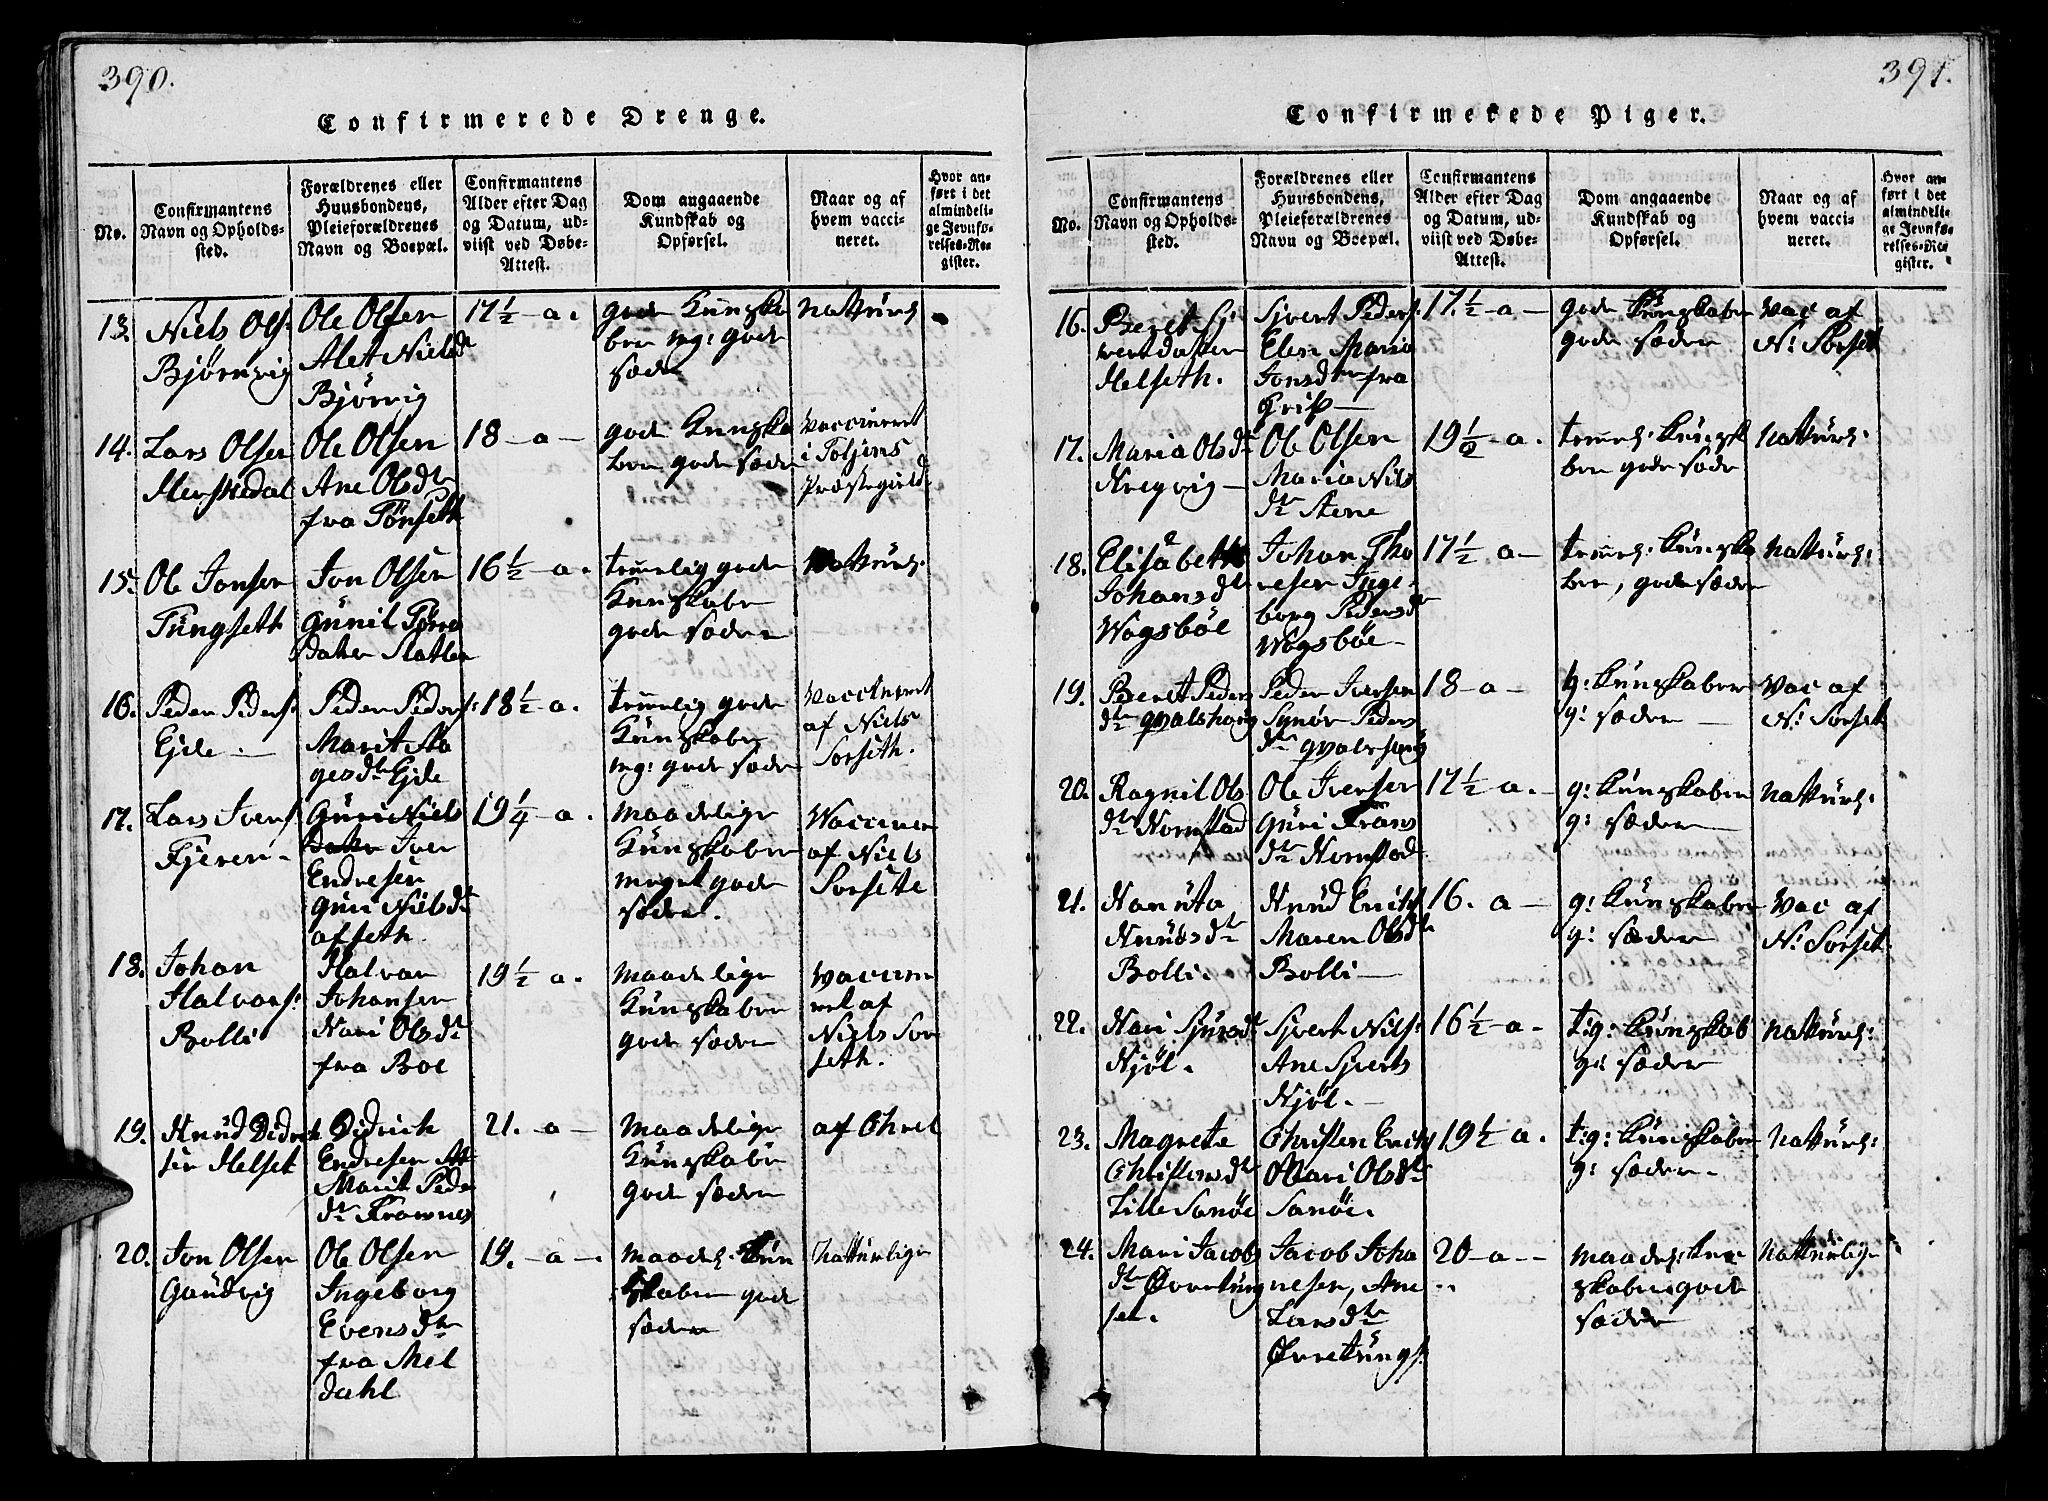 390.
Confirmerede Drenge.
No.
Confirmantens
Navn og Opholds-
sted.
Forældrenes eller
Huusbondens,
Pleieforældrenes
Navn og Boepæl.
Confirmantens
Alder efter Dag
og Datum, ud-
viist ved Døbe-
Attest.
Dom angaaende
Kundskab og
Opførsel.
Naar og af
hvem vacci-
neret.
Hvor an-
ført i det
almindeli-
ge Jevnfø-
relses-Re-
gister.
13.
Niels Ols:
Bjørnvig
Ole Olsen
Alet Nielsdr
Bjørvig
17½ - a.
gode Kunska
ber mg: gode
sæder
Natturl:
14.
Lars Olsen
Ole Olsen
Ane Olsdtr
fra Tønseth
18 - a -
gode Kunska
ber gode sæder
vaccineret
i
Præstegield
15.
Ole Jonsen
Tungseth
Jon Olsen
Gunil Torre
dater Slatlem
16½ - a.
temmelig gode
Kunskaber
gode sæder
Natturl:
16.
Peder Peders:
Ejde -
Peder Peders:
Marit Aa
gesdtr Ejde
18½ - a.
temmelig gode
Kunskaber
mg: gode sæder
vaccineret
af Niels
Sorseth.
17.
Lars Ivers:
Fjeren -
Guri Niels
dater Iver
Endresen
Guri Nielsdr
afseth
19¼ - a.
maadelige
Kunskaber
meget gode
sæder.
Vacciner
af Niels
Sorsete
18.
Johan
Halvors:
Bolli
Halvor
Johansen
Kari Olsdtr
fra Boe
19½ - a.
maadelige
Kunskaber
gode sæder
vaccine
ret af
Niels Sor
seth.
19.
Knud Didrich
sen Helset
Didrich
Endresen
Marit Peder
dtr
21. - a -
maadelige
Kunskaber
gode sæder
af Ehrel
20.
Jon Olsen
Gaudvig
Ole Olsen
Ingeborg
Evensdtr
fra Mel
dahl
19. - a -.
maadel: Kun
skaber gode
sæder
Natturlige
391.
Confirmerede Piger.
No.
Confirmantens
Navn og Opholds-
sted.
Forældrenes eller
Huusbondens,
Pleieforældrenes
Navn og Boepæl.
Confirmantens
Alder efter Dag
og Datum, ud-
viist ved Døbe-
Attest.
Dom angaaende
Kundskab og
Opførsel.
Naar og af
hvem vacci-
neret.
Hvor an-
ført i det
almindeli-
ge Jevnfø-
relses-Re-
gister.
16.
Beret Sj
vertdatter
Helseth.
Sjvert Peders:
Elen Maria
Jonsdtr fra
Grip -
17.½ - a -
gode Kunskaber
gode sæder
vac af
N: Sorset
17.
Maria Olsdr
Kregvig -
Ole Olsen
Maria Nils
dtr Stene
19½ - a.
temmel: Kunska
ber gode sæde
Natturl:
18.
Elisabeth
Johansdr
Wogsbøe
Johan Tho
resen Inge-
borg Pedersdr
Wogsbøe -
17½ a -
temmel: Kunska
ber, gode sæder
Natturl:
19.
Beret Peders
dtr Qvalshoug
Peder Iversen
Synøv Peders
dtr
18 - a -
g: Kunskaber
g: sæder -
vac af
N: Sorset
20.
Ragnil Ols
dtr Nornstad
Ole Iversen
Guri Frans
dtr Nornstad
17½ a. -
g: Kunskaber
g: sæder -
Natturl:
21.
Knudsdtr
Bolli.
Knud Erichs
Maren Olsdr
Bolli -
16. a -
g: Kunskaber
g: sæder
Vac af
N: Sorset
22.
Kari Sjursdr
Kjøl.
Sjvert Nils:
Ane Sjverts
Kjøl. -
16½ - a -
t:g: Kunskab
g: sæder
Natturl:
23.
Magrete
Christensdr
Lille Sanøe
Christen Erichs
Mari Olsdtr
Sanøe.
19½ a.
t:g: Kunskaber
g: sæder -
Natturl:
24.
Mari Jacobs
dtr Øvretung
set.
Jacob Joha
nesen, Ane
Larsdtr
Øvretungs:
20 - a - -
maadel: Kun
skaber gode
sæder
Natturlige